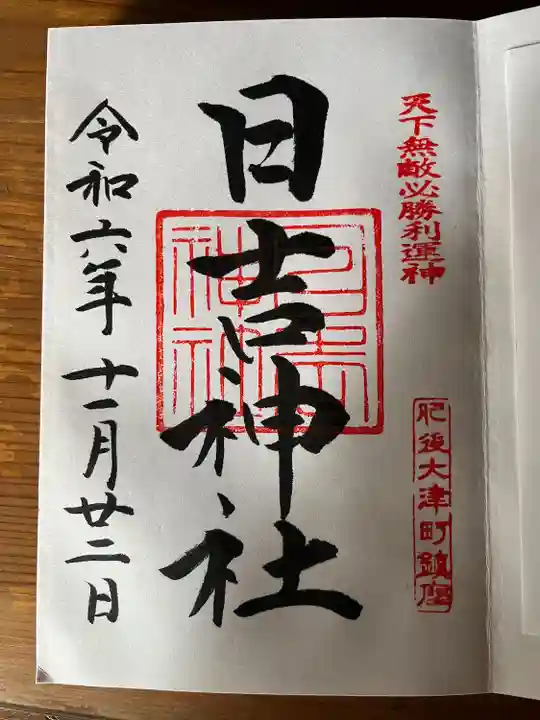 天下無敵必勝利運神
肥後大津町鎮座
日吉神社
日吉神社
令和六年十一月廿二日